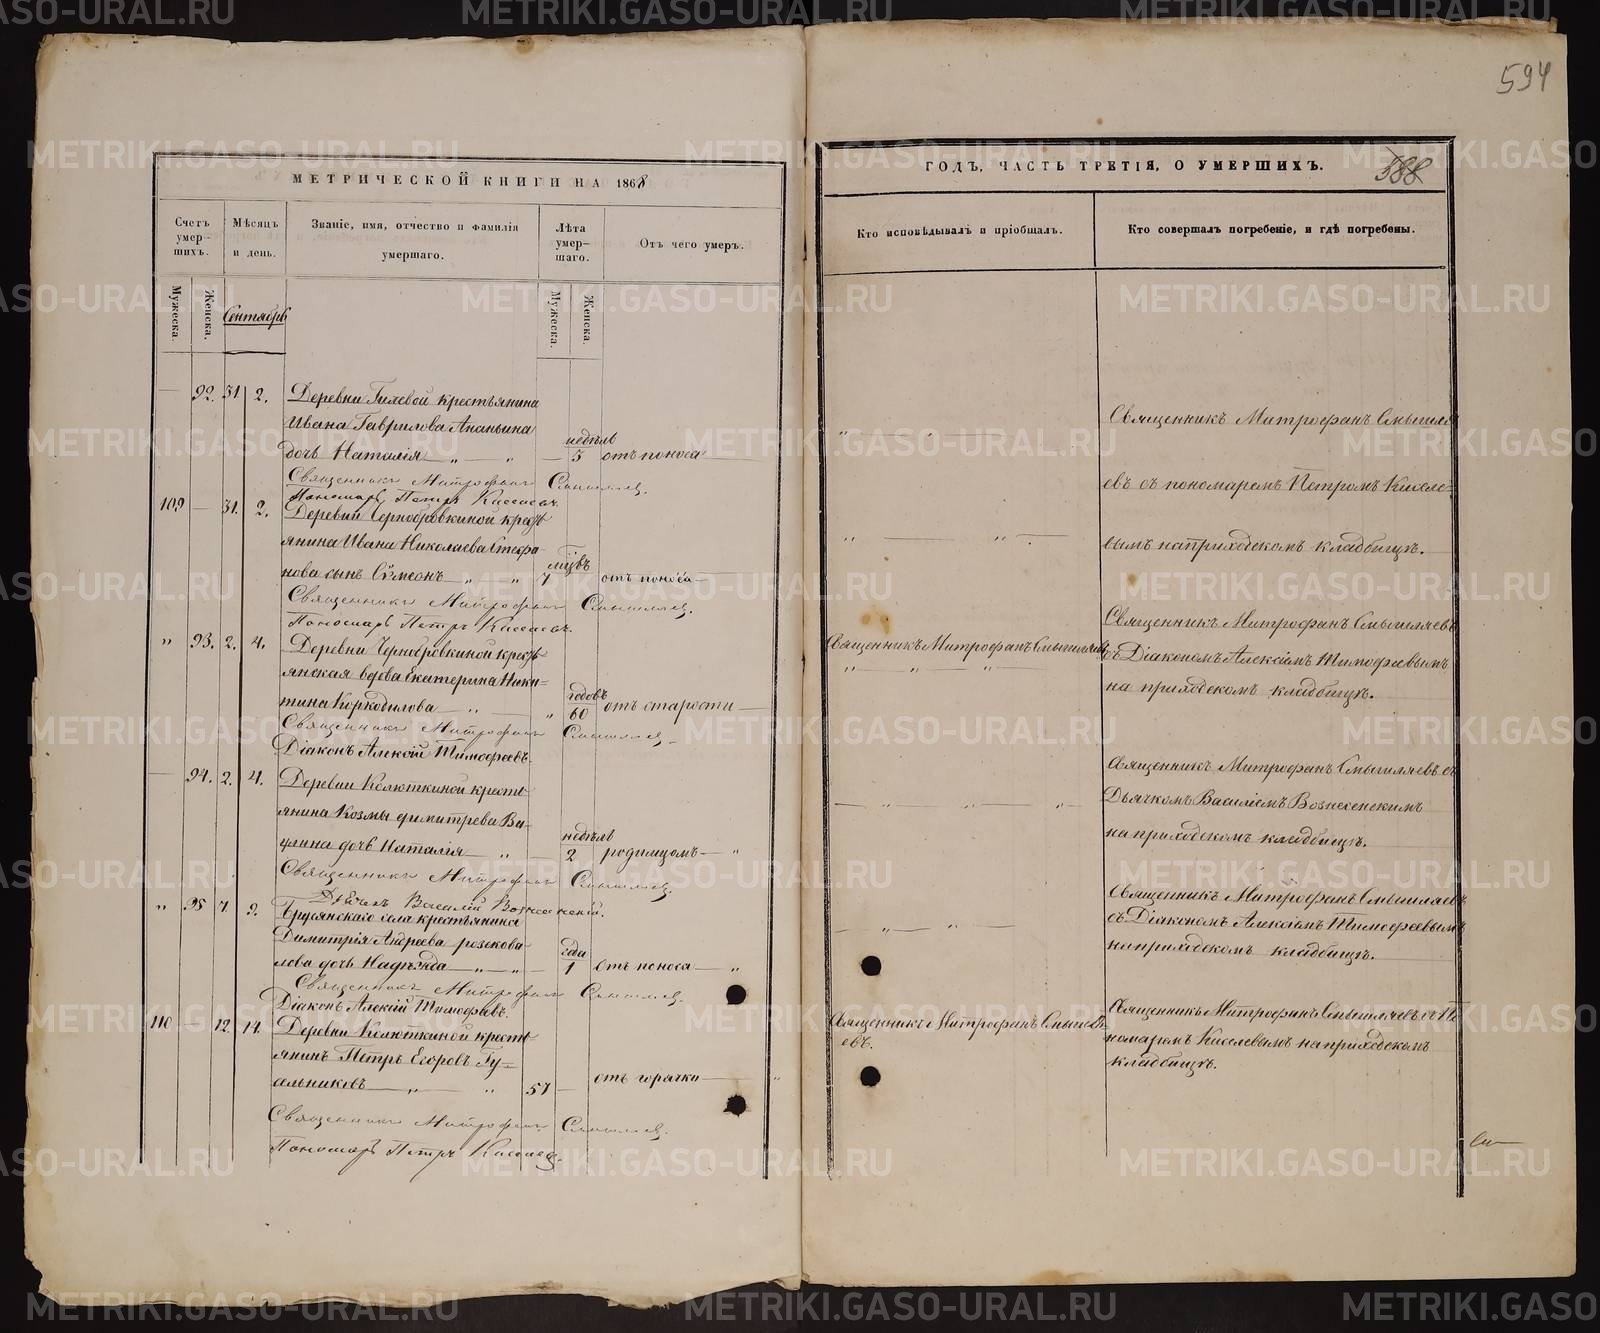 594
МЕТРИЧЕСКОЙ КНИГИ НА 1868
Счетъ умер-
шихъ.
Мѣсяцъ
и день.
Званіе, имя, отчество и фамилія
умершаго.
Лѣта
умер-
шаго.
Отъ чего умеръ.
Мужеска.
Женска.
Сентябрь
Мужеска.
Женска.
— 92. 31. 2. Деревни Гилевой крестьянина
Ивана Гаврилова Ананьина
недѣль
дочь Наталія — 5 отъ поноса
Священникъ Митрофанъ Смышляев.
Пономарь Петръ Киселевъ.
109 — 31. 2. Деревни Чернобровкиной кресть
янина Ивана Николаева Стефа-
мцвъ
нова сынъ Сѵмеонъ 7 отъ поноса
Священникъ Митрофанъ Смышляев.
Пономарь Петръ Киселевъ.
„ 93. 2. 4. Деревни Чернобровкиной кресть
янская вдова Екатерина Ники-
годовъ
тина Коркодилова „ 60 отъ старости
Священникъ Митрофанъ Смышляев
Діаконъ Алексій Тимофеевъ.
— 94. 2. 4. Деревни Колюткиной кресть
янина Козмы Димитрева Ва-
недѣль
улина дочь Наталія 2 родимцомъ
Священникъ Митрофанъ Смышляев.
Дьячекъ Василій Вознесенскій.
„ 95 7. 9. Брусянскаго села крестьянина
Димитрія Андреева
года
лова дочь Надѣжда 1 отъ поноса
Священникъ Митрофанъ Смышляев.
Діаконъ Алексій Тимофеевъ.
110 — 12. 14. Деревни Колюткиной кресть
янинъ Петръ Егоровъ Гу-
альниковъ 57 — отъ горячки
Священникъ Митрофанъ Смышляев.
Пономарь Петръ Киселев.
ГОДЪ, ЧАСТЬ ТРЕТІЯ, О УМЕРШИХЪ.
388
Кто исповѣдывалъ и пріобщалъ.
Кто совершалъ погребеніе, и гдѣ погребены.
Священникъ Митрофанъ Смышля
евъ съ пономаремъ Петромъ Киселе-
вымъ на приходскомъ кладбищѣ.
Священникъ Митрофанъ Смышляевъ
Священникъ Митрофанъ Смышляевъ
съ Діакономъ Алексіемъ Тимофеевымъ
на приходскомъ кладбищѣ.
Священникъ Митрофанъ Смышляевъ съ
Дьячкомъ Василіемъ Вознесенскимъ
на приходскомъ кладбищѣ.
Священникъ Митрофанъ Смышляевъ
съ Діакономъ Алексіемъ Тимофеевымъ
на приходскомъ кладбищѣ.
Священникъ Митрофанъ Смышля
евъ.
Священникъ Митрофанъ Смышляевъ съ По
номаремъ Киселевымъ на приходскомъ
кладбищѣ.
METRIKI.GASO-URAL.RU